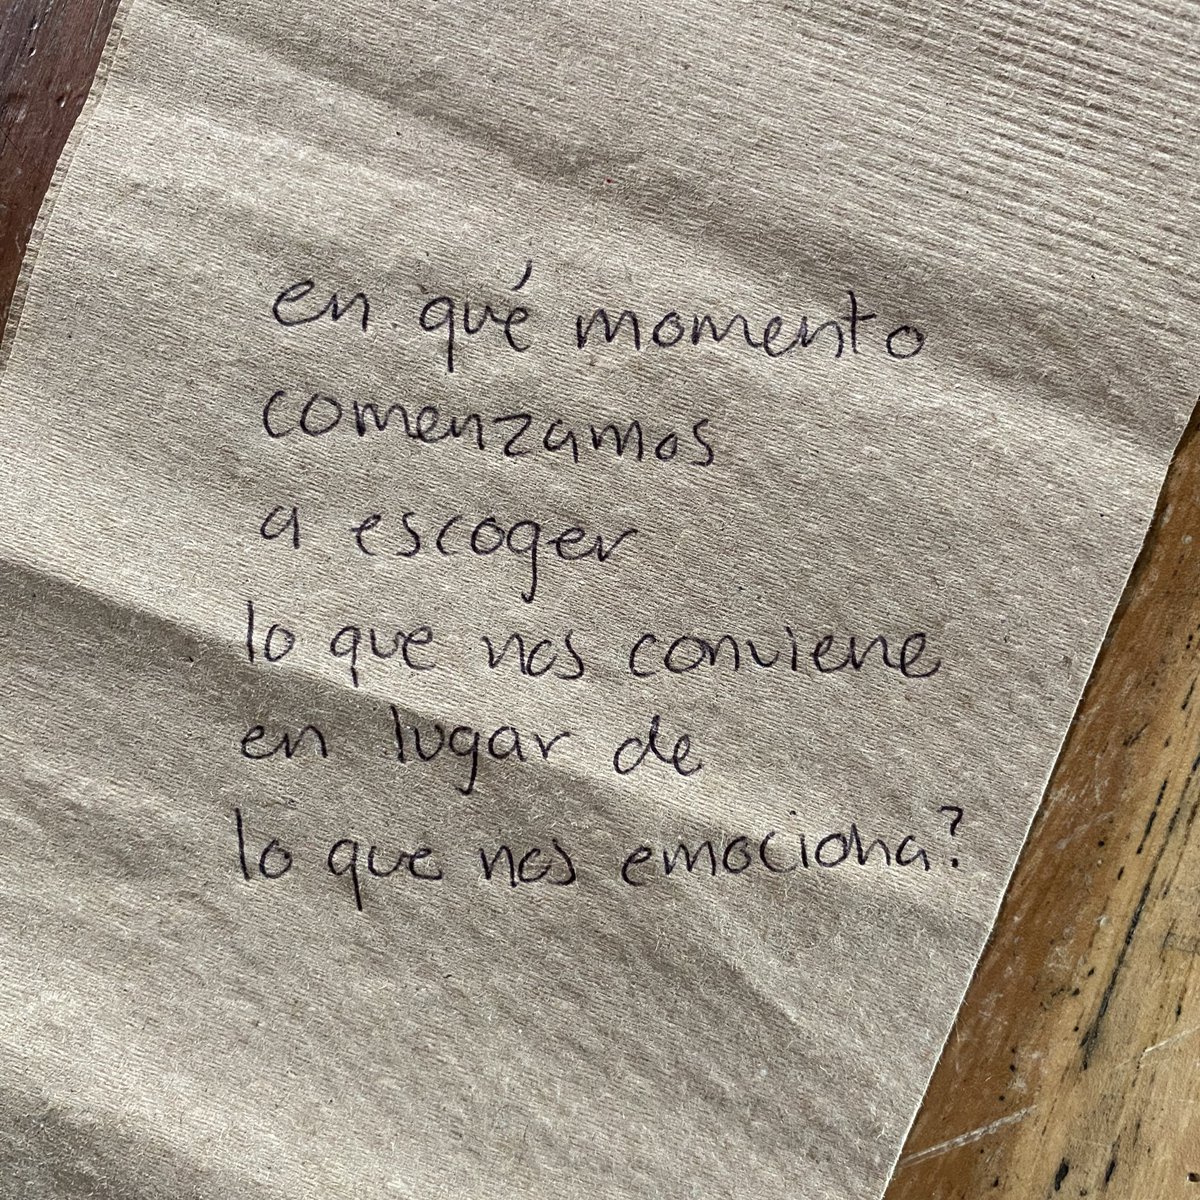 en qué momento
comenzamos
a escoger
lo que nos conviene
en lugar de
lo que nos emociona?